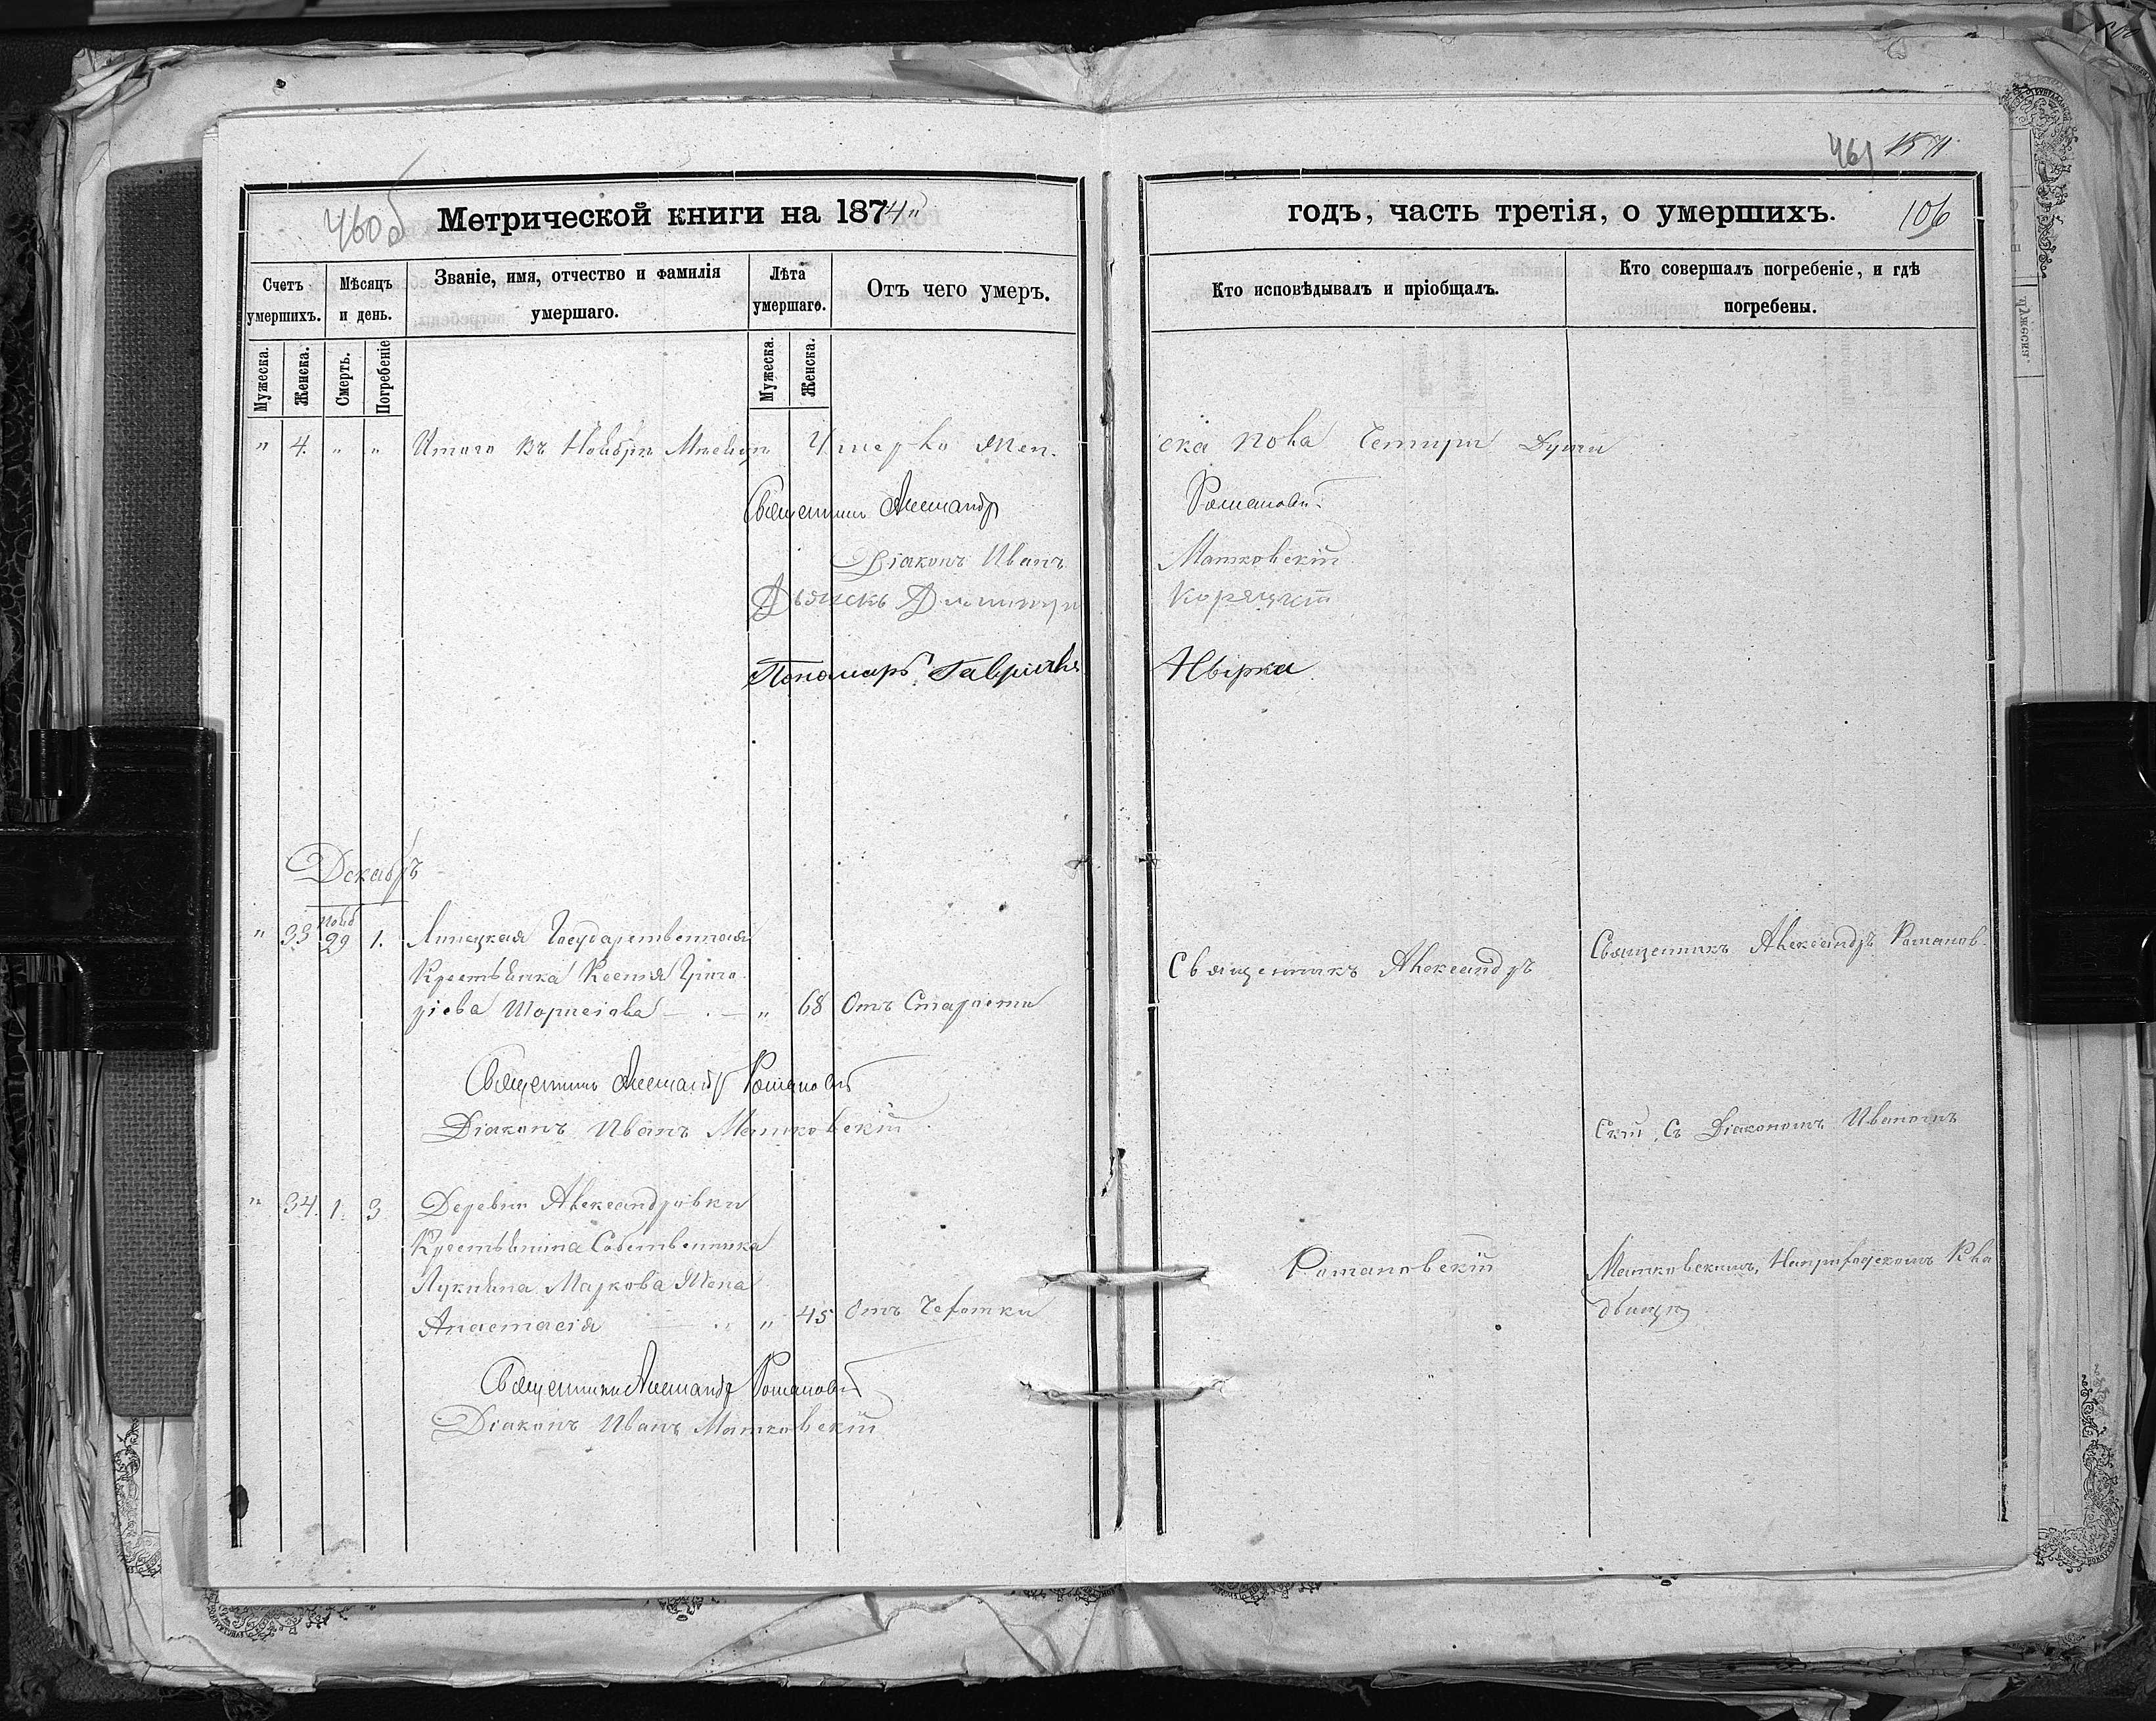 461 1571
460б Метрической книги на 1874"
годъ, часть третія, о умершихъ. 106
Счетъ умершихъ.
Мѣсяцъ и день.
Званіе, имя, отчество и фамилія умершаго.
Лѣта умершаго.
Отъ чего умеръ.
Кто исповѣдывалъ и пріобщалъ.
Кто совершалъ погребеніе, и гдѣ погребены.
Мужеска.
Женска.
Смерть.
Погребеніе
Мужеска.
Женска.
" 4. " " Итого въ Ноябрѣ Мѣсяцѣ Умерло Жен.
ска пола Четыри Души
Священникъ Александр
Романовскій
Діаконъ Иванъ
Матковскій
Дьячекъ Димитрій
Корецкій
Пономарь Гавріилъ
Декабрь
" 33 Нояб 29 1. Липецкая Государственная
Крестьянка Ксенія Григо
ріева " 68 Отъ Старости
Священникъ Александръ
Священникъ Александръ Романов
Священникъ Александр Романовскій
Діаконъ Иванъ Матковскій
Скій, съ Діакономъ Иваномъ
" 34. 1. 3 Деревни Александровки
Крестьянина Собственника
Лукіяна Маркова Жена
Анастасія " 45 Отъ Чехотки
Романовскій
Матковскимъ, На приходскомъ Кла
дбищѣ
Священникъ Александр Романовскій
Діаконъ Иванъ Матковскій